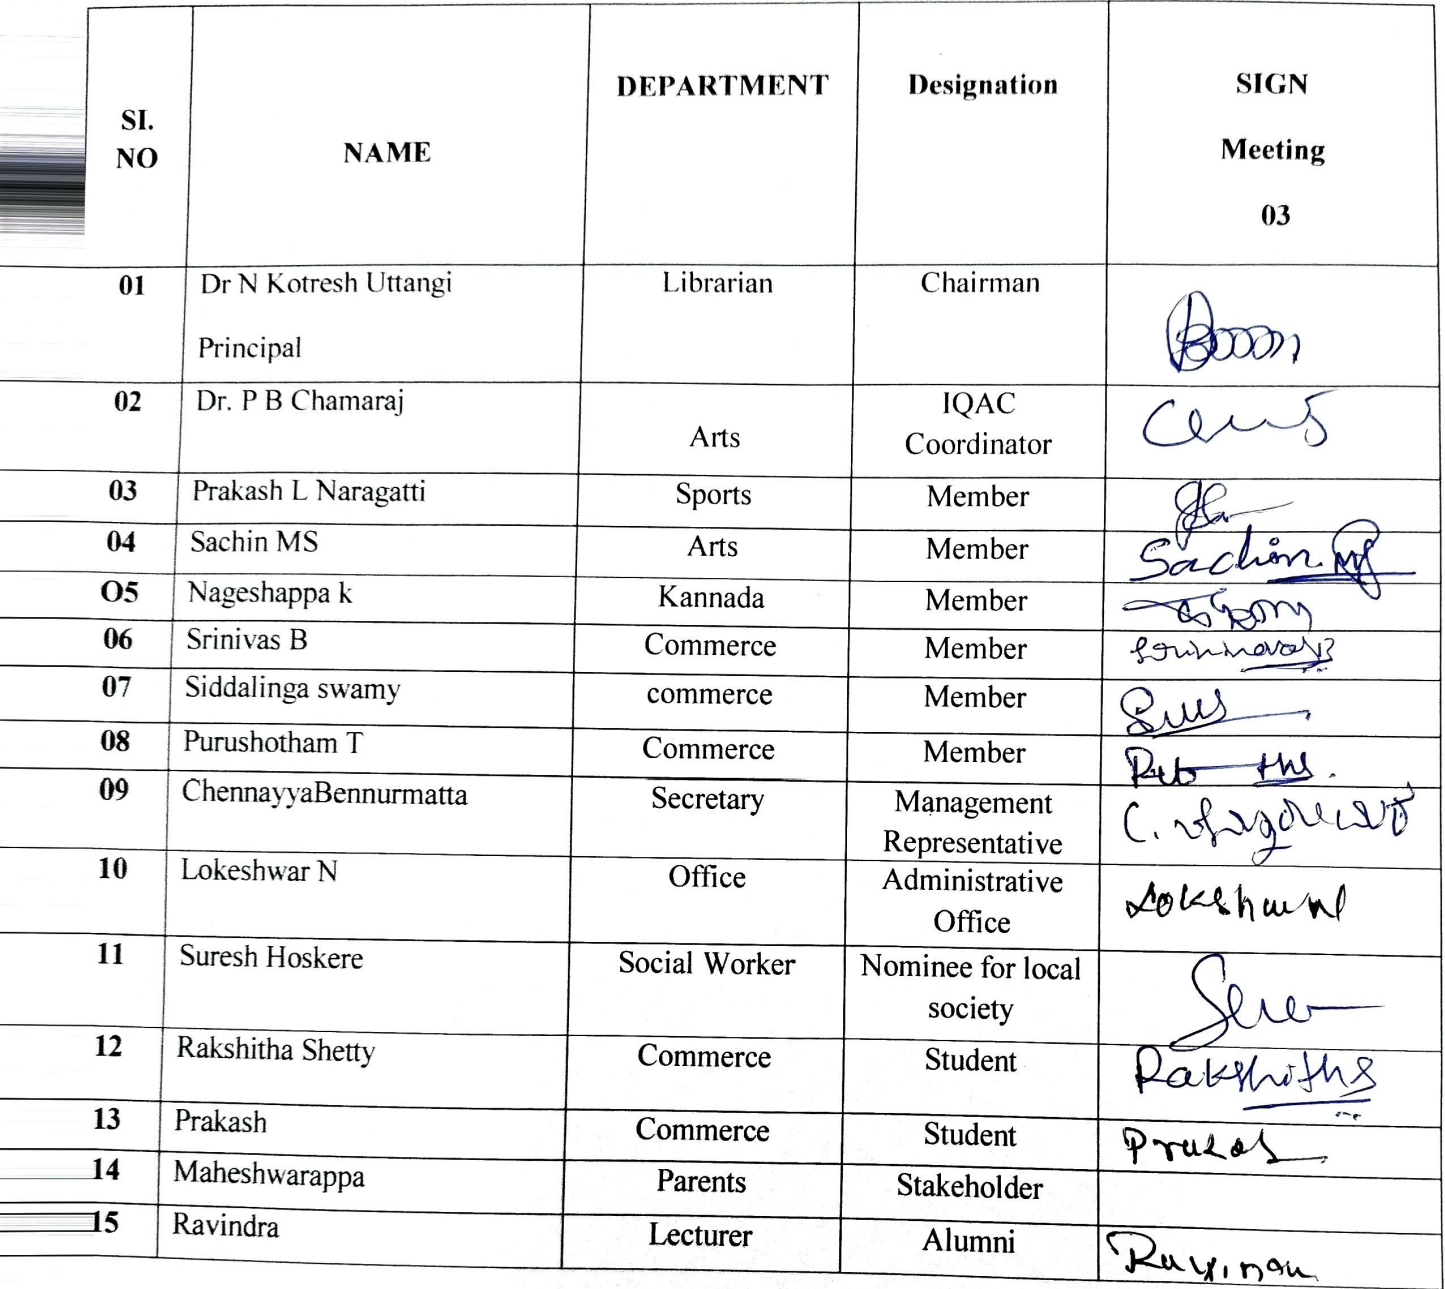 SI.
NO
NAME
DEPARTMENT
Designation
SIGN
Meeting
03
01
Dr N Kotresh Uttangi
Principal
Librarian
Chairman
02
Dr. P B Chamaraj
Arts
IQAC
Coordinator
03
Prakash L Naragatti
Sports
Member
04
Sachin MS
Arts
Member
Sachin
O5
Nageshappa k
Kannada
Member
06
Srinivas B
Commerce
Member
07
Siddalinga swamy
commerce
Member
08
Purushotham T
Commerce
Member
09
ChennayyaBennurmatta
Secretary
Management
Representative
10
Lokeshwar N
Office
Administrative
Office
11
Suresh Hoskere
Social Worker
Nominee for local
society
12
Rakshitha Shetty
Commerce
Student
13
Prakash
Commerce
Student
14
Maheshwarappa
Parents
Stakeholder
15
Ravindra
Lecturer
Alumni